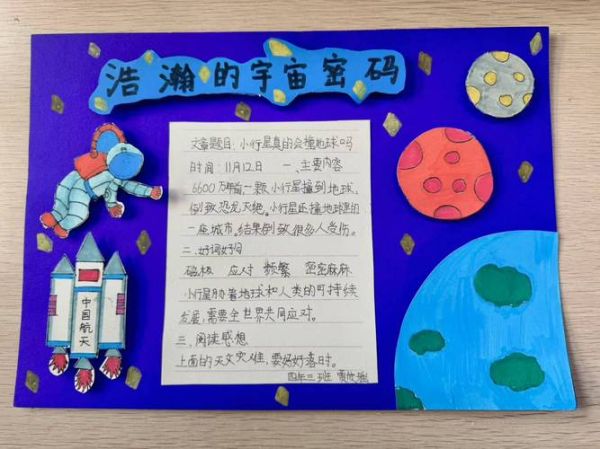 浩瀚的宇宙密码
文章题目:小行星真的会撞地球吗
时间:11月12日 一、主要内容
6600万年前一颗小行星撞到地球,
倒致恐龙灭绝。小行星还撞地球里的
一座城市。结果倒致很多人受伤。
二、好词好句
应对 频繁 密密麻麻
小行星胁着地球和人类的可持续
发展,需要全世界共同应对。
三、阅读感想
上面的天文灾难,要好好落时。
四年三班
中国航天